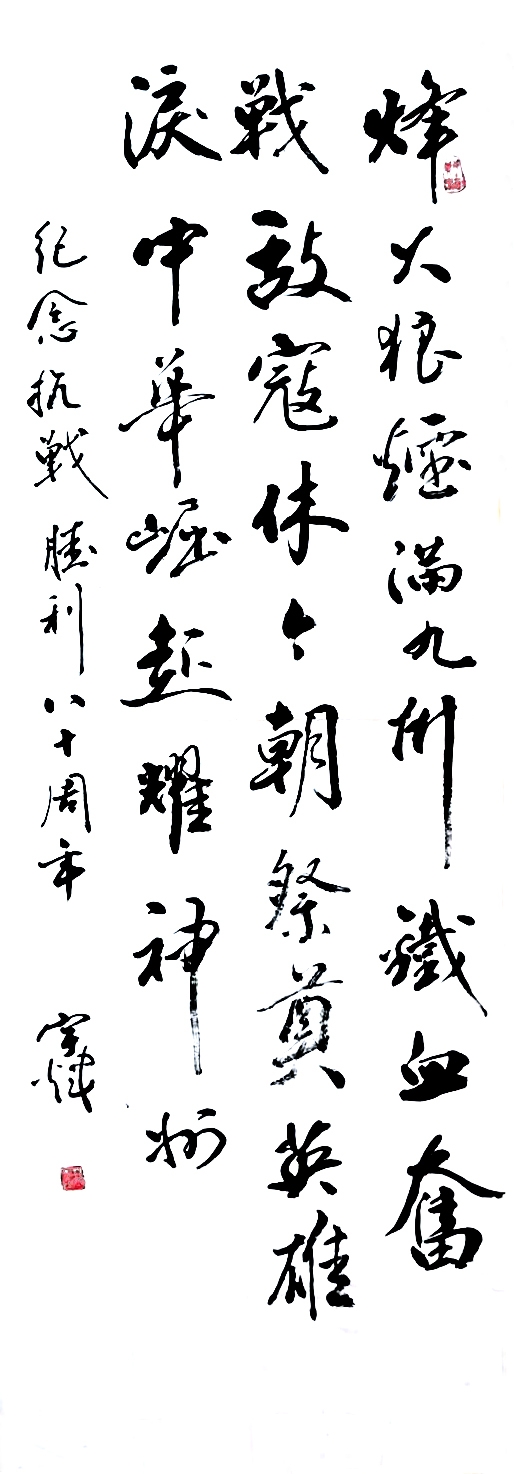 烽火狼煙滿九州鐵血奮
戰敌寇休今朝祭奠英雄
淚中華崛起耀神州
紀念抗戰勝利八十周年